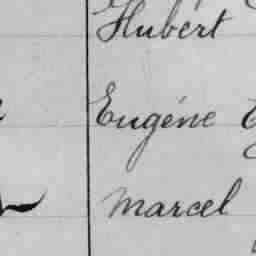 Hubert
Eugéne
Marcel